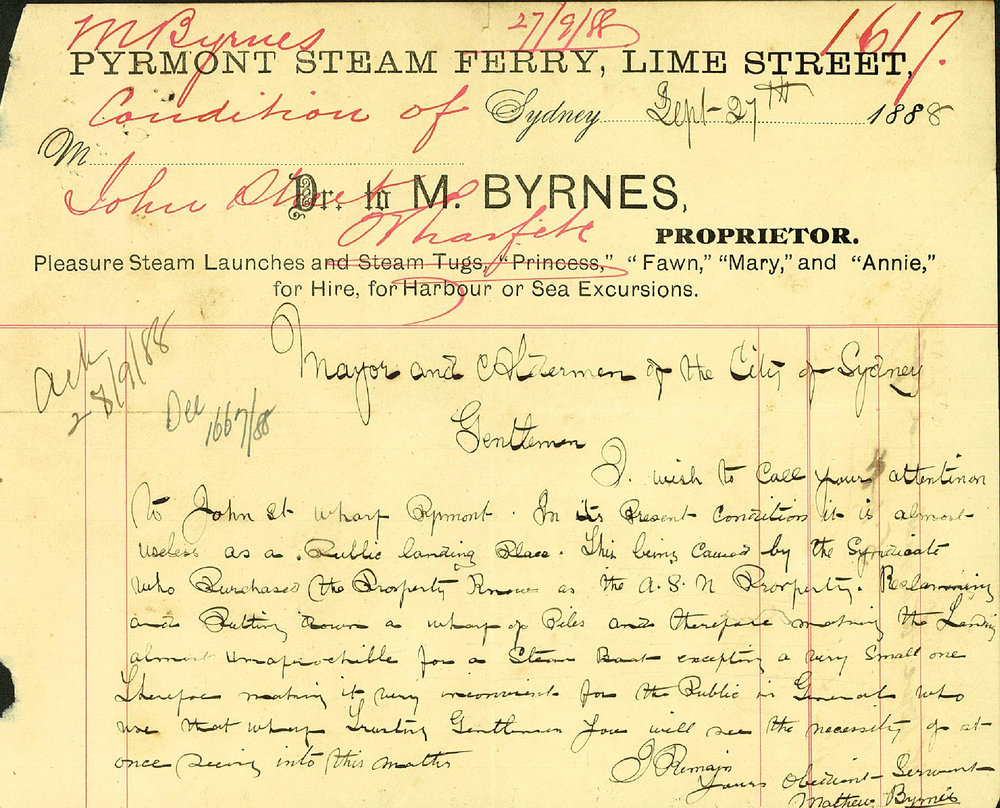 M Byrnes 27/9/88 1617.
PYRMONT STEAM FERRY, LIME STREET,
Condition of Sydney Sept 27TH 1888
M
John Street Dr. to M. BYRNES,
Wharf &c PROPRIETOR.
Pleasure Steam Launches and Steam Tugs, "Princess," "Fawn," "Mary," and "Annie,"
for Hire, for Harbour or Sea Excursions.
Ack
28/9/88
Dec 1667/88
Mayor and Aldermen of the City of Sydney
Gentlemen
I. wish to Call your attention
to John St wharf Pymont. In its Present Condition it is almost
useless as a Public landing Place. This being Caused by the Syndicate
who Purchased the Property Know as the A.S.N Prorperty. Reclaiming
and Putting down a wharf of Piles and therefore making the Landing
almost unaprochible for a Steam Boat excepting a very Small one
Therefore making it very inconvient for the Public in General who
use that wharf Trusting Gentlemen you will see the necessity of at
once seeing into this matter
I Remain
Yours Obedient Servant
Mathew Byrnes